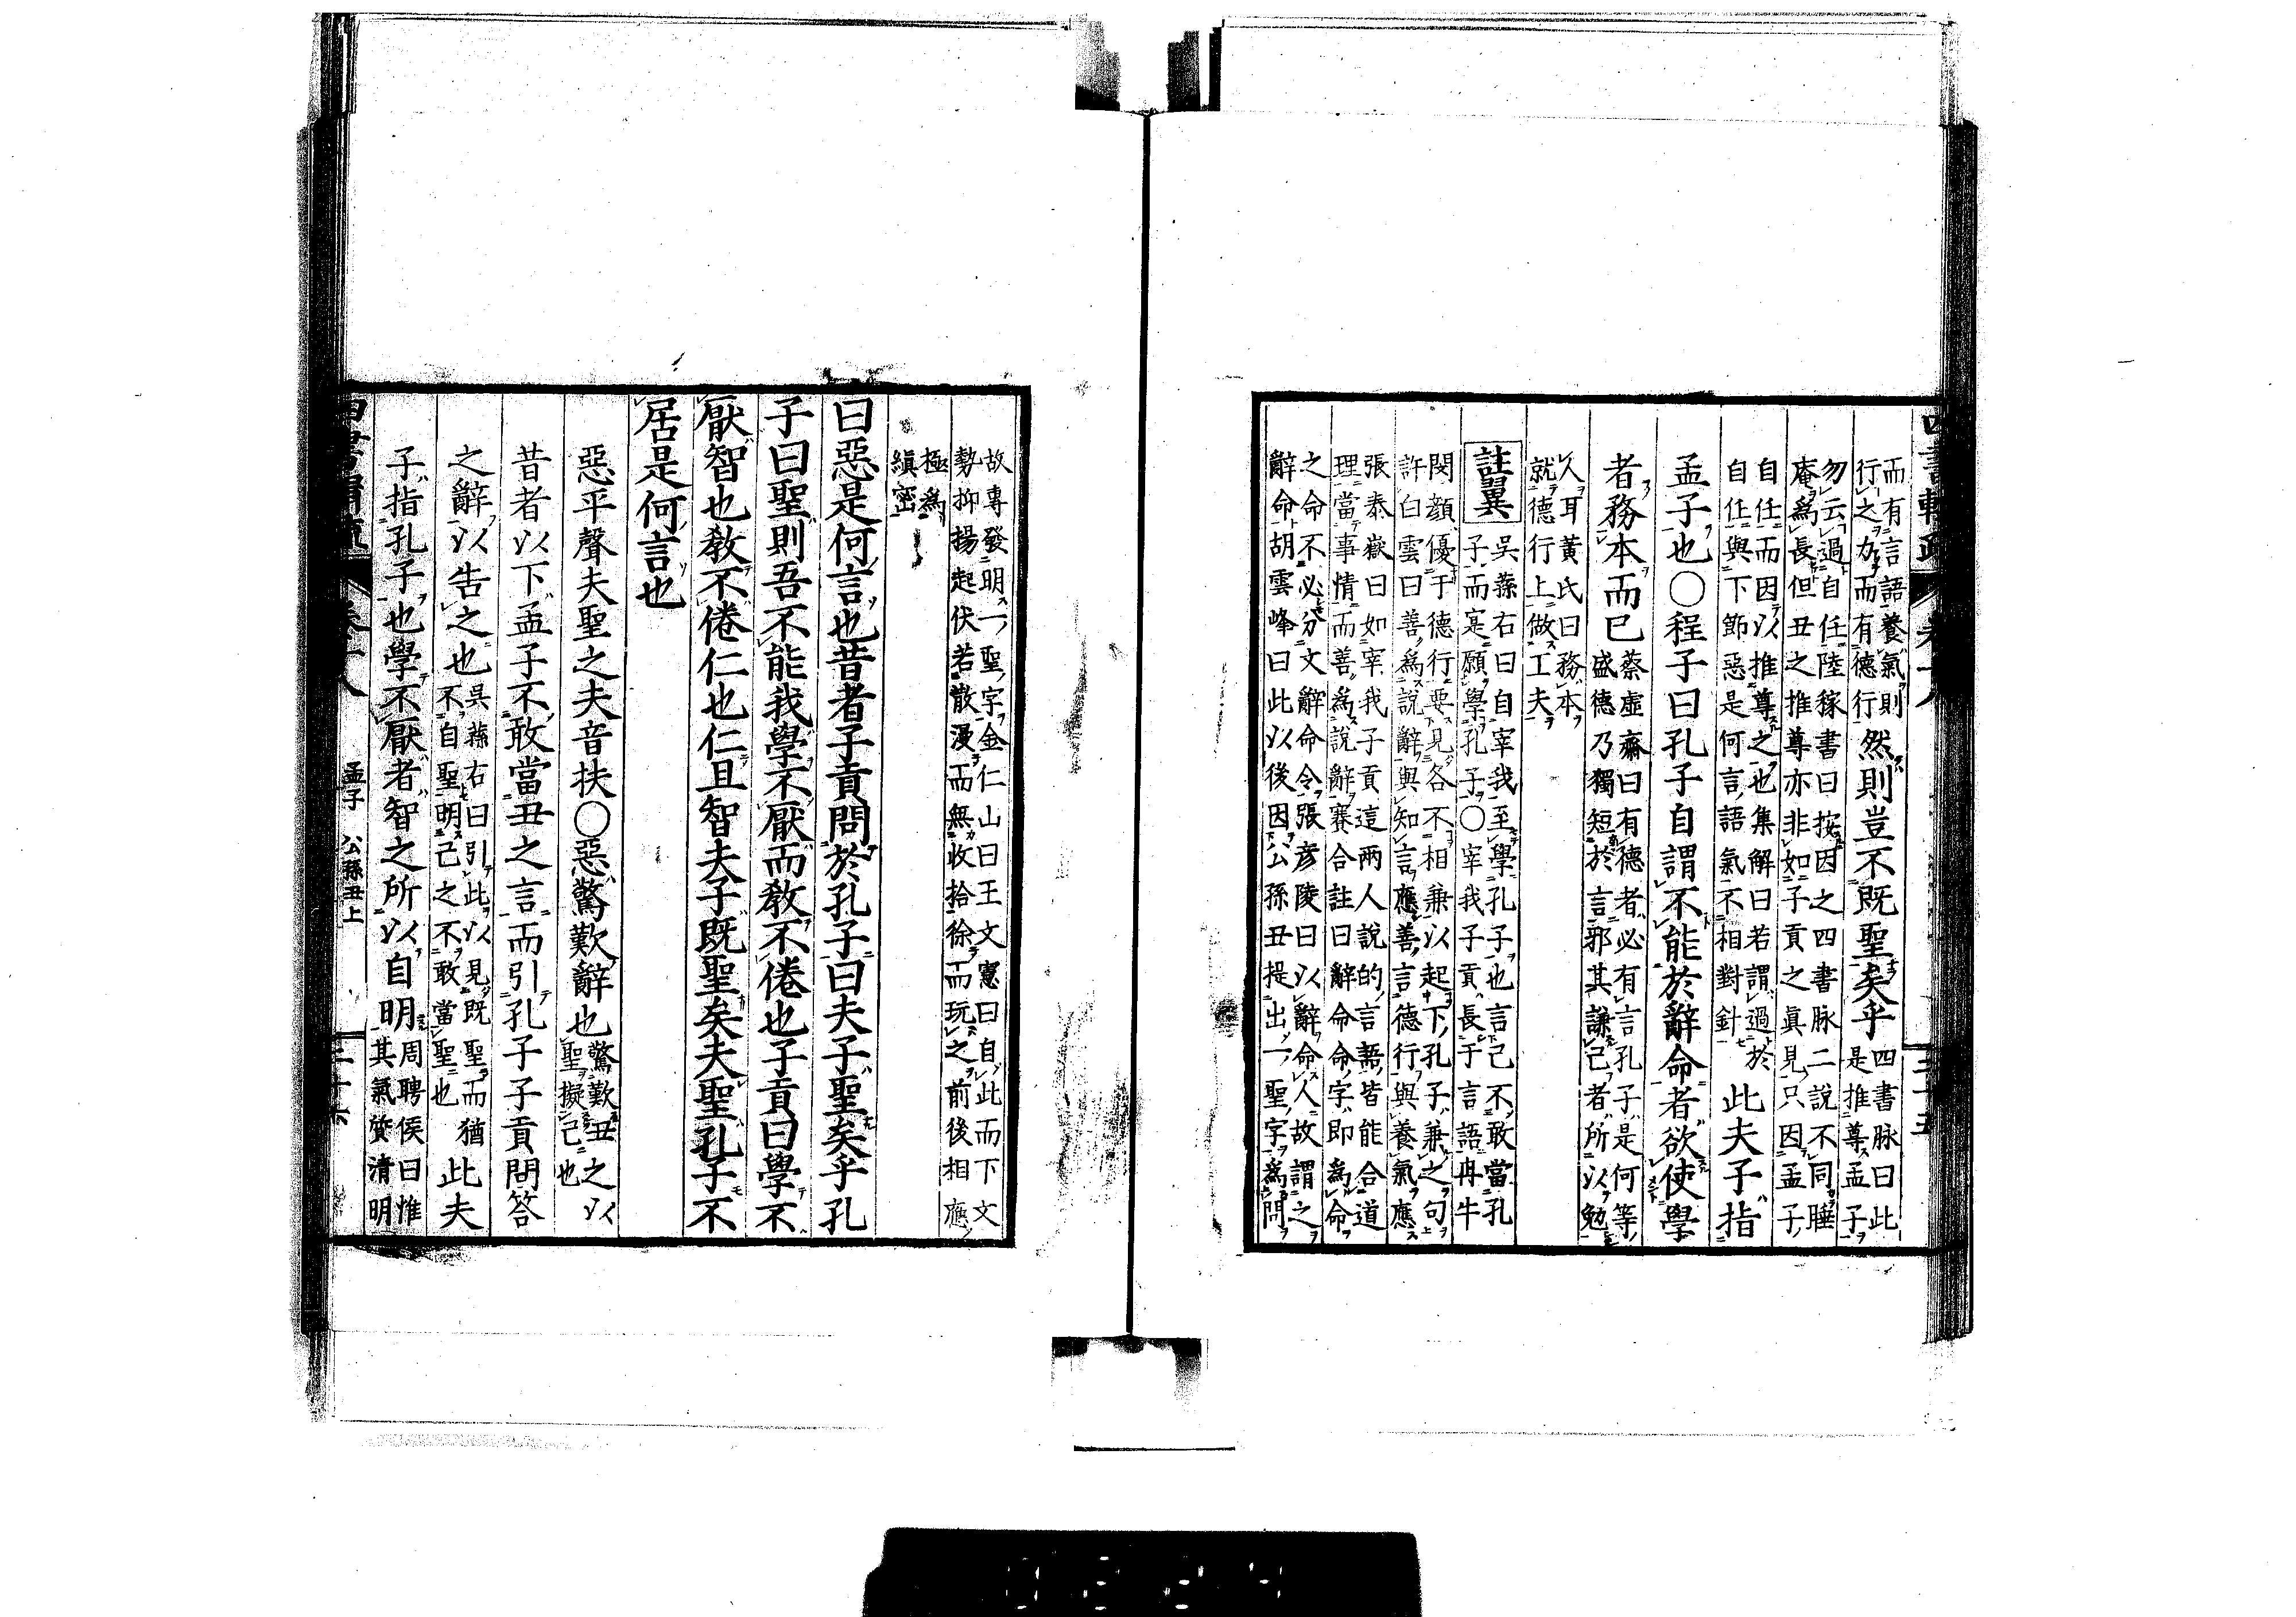 而有言語養氣則
行之力而有德行
然則豈不既聖矣乎
四書脉曰此
是推尊孟子
勿云過自任陸稼書曰按因之四書脉二說不同睡
庵爲長但丑之推尊亦非如子貢之眞見只因孟子
自任而因以推尊之也集解曰若謂過於
自任與下節惡是何言語氣不相對針
此夫子指
孟子也〇程子曰孔子自謂不能於辭命者欲使學
者務本而已
蔡虛齋曰有德者必有言孔子是何等
盛德乃獨短於言邪其謙己者所以勉
人耳黃氏曰務本
就德行上做工夫
註翼
吳蓀右曰自宰我至學孔子也言己不敢當孔
子而寔願學孔子〇宰我子貢長于言語冉牛
閔顏優于德行要見各不相兼以起下孔子兼之句
許白雲曰善爲說辭與知言應善言德行與養氣應
張泰嶽曰如宰我子貢這兩人說的言語皆能合道
理當事情而善爲說辭賽合註曰辭命命字即爲命
之命不必分文辭命令張彥陵曰以辭命人故謂之
辭命胡雲峰曰此以後因公孫丑提出一聖字爲問
故專發明一聖字金仁山曰王文憲曰自此而下文
勢抑揚起伏若散漫而無收拾徐而玩之前後相應
極爲
縝密
曰惡是何言也昔者子貢問於孔子曰夫子聖矣乎孔
子曰聖則吾不能我學不厭而教不倦也子貢曰學不
厭智也敎不倦仁也仁且智夫子既聖矣夫聖孔子不
居是何言也
惡平聲夫聖之夫音扶〇惡驚歎辭也
驚歎丑之以
聖擬己也
昔者以下孟子不敢當丑之言而引孔子子貢問答
之辭以告之也
吳蓀右曰引此以見既聖而猶
不自聖明己之不敢當聖也
此夫
子指孔子也學不厭者智之所以自明
周聘侯曰惟
其氣質清明
孟子 公孫丑上